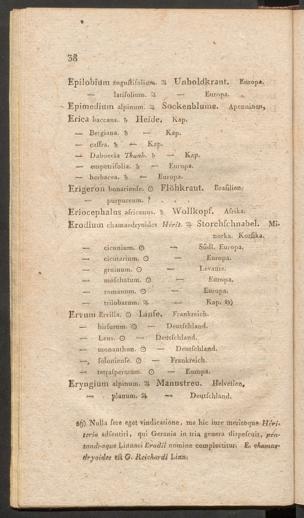 38
Epilobium angustifolium. ♃ Unholdkraut. Europa.
— latifolium. ♃ — Europa.
Epimedium alpinum. ♃ Sockenblume. Apenninen,
Erica baccans. ♄ Heide. Kap.
— Bergiana. ♄ — Kap.
— caffra. ♄ — Kap.
— Daboecia Thunb. ♄ — Kap.
— empetrifolia. ♄ — Europa.
— herbacea. ♄ — Europa.
Erigeron bonariense. ☉ Flöhkraut. Brasilien.
— purpureum. ? . . . .
Eriocephalus africanus. ♄ Wollkopf. Afrika.
Erodium chamaedryoides Hérit. ♃ Storchschnabel. Mi-
norka. Korsika.
— ciconium. ☉ — Südl. Europa.
— cicutarium. ☉ — Europa.
— gruinum. ☉ — Levante.
— moschatum. ☉ — Europa.
— romanum. ☉ — Europa.
— trilobatum. ♃ — Kap.
Ervum Ervilia. ☉ Linse. Frankreich.
— hirsutum. ☉ — Deutschland.
— Lens. ☉ — Deutschland.
— monanthum. ☉ — Deutschland.
— soloniense. ☉ — Frankreich.
— tetraspermum. ☉ — Europa.
Eryngium alpinum. ♃ Mannstreu. Helvetien,
— planum. ♃ — Deutschland.
Nulla fere eget vindicatione, me hic iure meritoque Héri-
terio adsentiri, qui Gerania in tria genera dispescuit,
Linnaei Erodii nomine complectitur. E. chamae-
dryoides est G. Reichardi Linn.